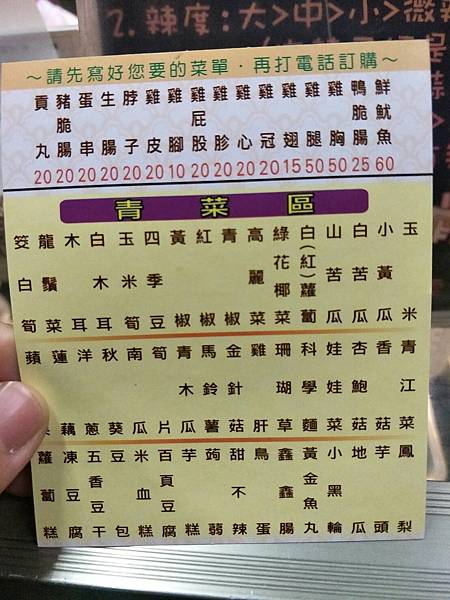 2. 辣度:大>中>小>微辣
~請先寫好您要的菜單·再打電話訂購~
貢丸 20
豬脆腸 20
蛋串 20
生腸 20
脖子 20
雞皮 20
雞腳 10
雞屁股 20
雞胗 20
雞心 20
雞冠 20
雞翅 15
雞腿 50
雞胸 50
鴨腸 25
鮮魷魚 60
青菜區
筊白筍
龍鬚菜
木耳
白木耳
玉米筍
四季豆
黃椒
紅椒
青椒
高麗菜
綠花椰菜
白(紅)蘿蔔
山苦瓜
白苦瓜
小黃瓜
玉米
蘋
蓮藕
洋蔥
秋葵
南瓜
筍片
青木瓜
馬鈴薯
金針菇
雞肝
珊瑚草
科學麵
娃娃菜
杏鮑菇
香菇
青江菜
蘿蔔糕
凍豆腐
五香豆干
豆包
米血糕
百頁豆腐
芋糕
蒟弱
甜不辣
鳥蛋
鑫鑫腸
黃金魚丸
小黑輪
地瓜
芋頭
鳳梨